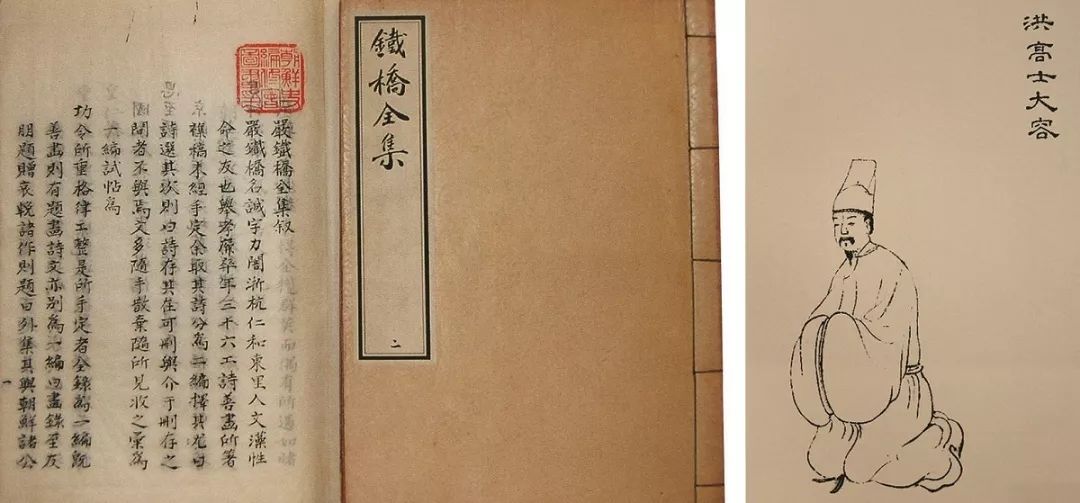 洪高士大容
鐵橋全集
二
朝鮮史
編修會
圖書
嚴鐵橋全集叙
嚴鐵橋名誠字力闇浙杭仁和東里人文藻性
命之友也舉孝廉卒年三十六工詩善畫所著
襍稿本經手定余取其詩分為二編擇其尤曰
詩選其次則曰詩存其在可刪與介于刪存之
間者不與焉文多隨手散棄隨所見收之彙為
一編試帖為
功令所重格律工整是所手定者全錄為二編既
善畫則有題畫詩文亦別為一編曰畫錄至友
朋題贈哀輓諸作則題曰外集其與朝鮮諸公
一